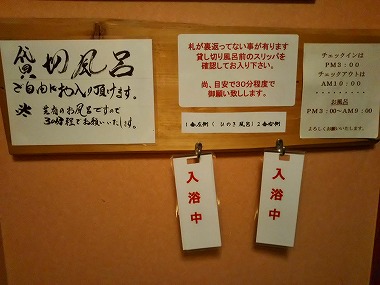 貸切風呂
ご自由にお入り頂けます。
※
お風呂ですので
30分程でお願いいたします。
札が裏返ってない事が有ります
貸し切り風呂前のスリッパを
確認してお入り下さい。
尚、目安で30分程度で
御願い致します。
1番左側(ひのき風呂)2番右側
チェックインは
PM3:00
チェックアウトは
AM10:00
お風呂
PM3:00~AM9:00
よろしくお願いいたします。
入浴中
入浴中